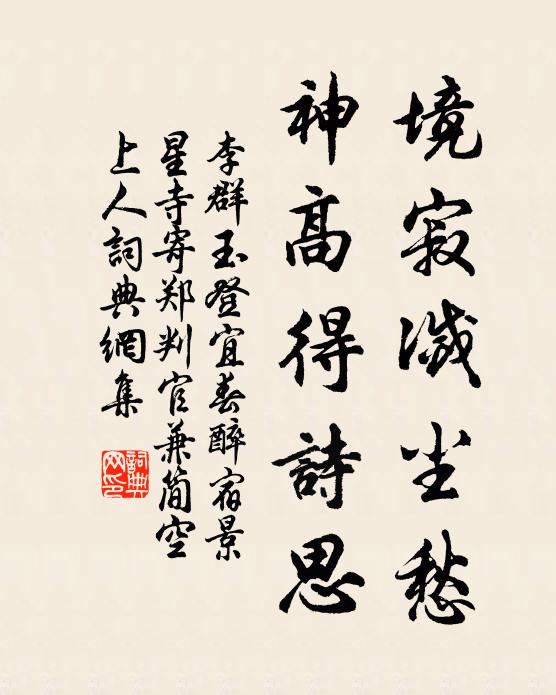 境寂滅尘愁
神髙得詩思
李群玉登宜春醉宿景
星寺寄郑判官兼简空
上人詞典網集
詞典
网印